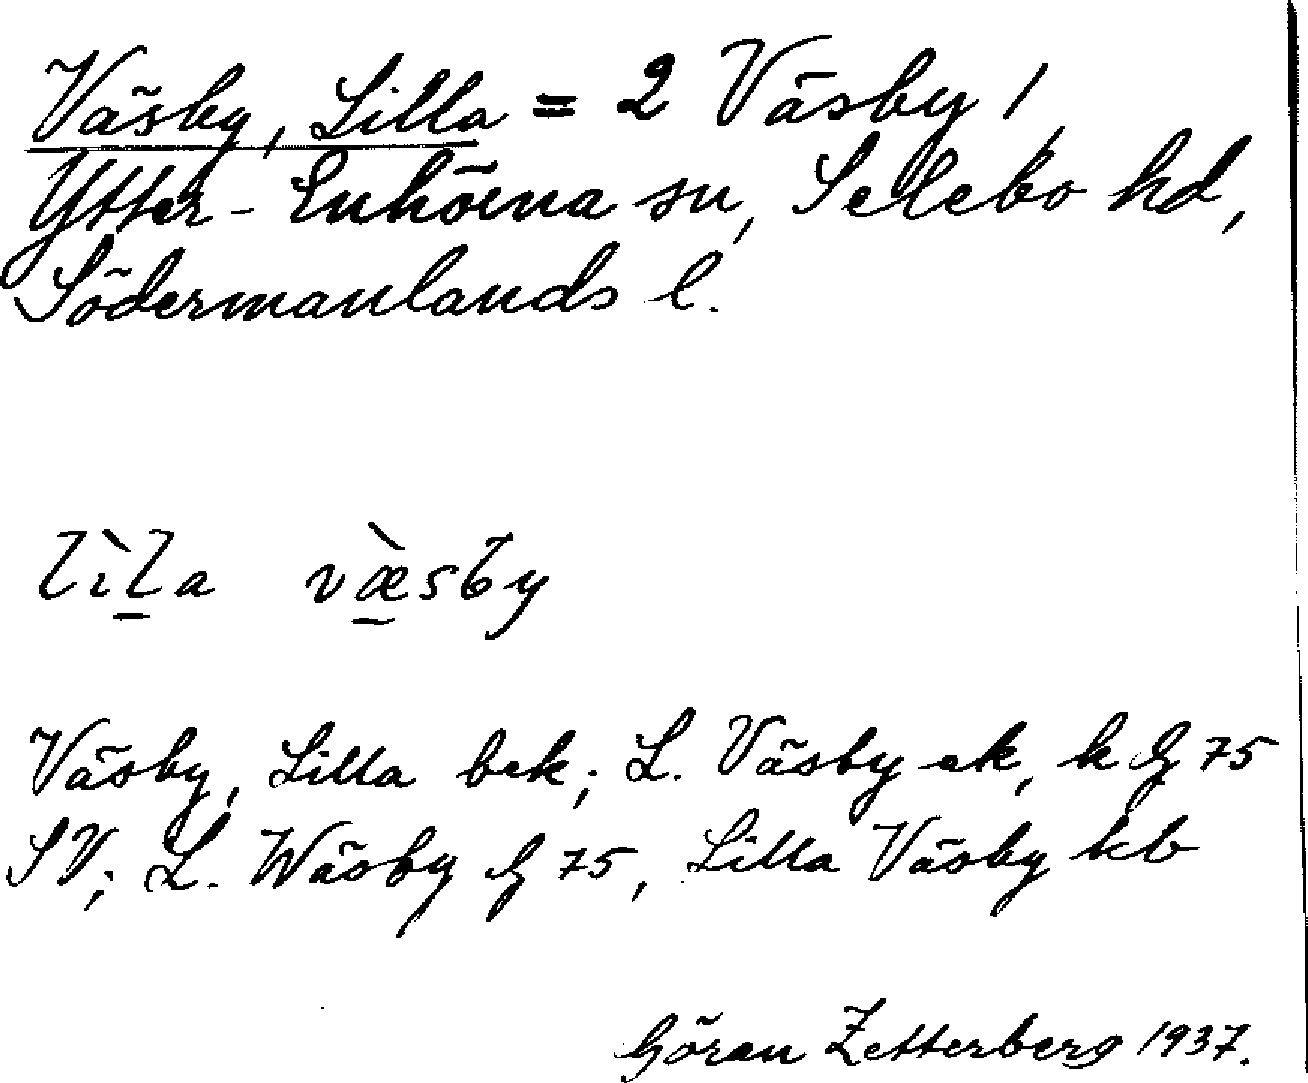 Väsby, Lilla = 2 Väsby 1,
Ytter-Enhörna sn, Selebo hd,
Södermanlands l.
lìla væ̀sby
Väsby, Lilla bek; L. Väsby ek, k G 75
SV; L. Wäsby G 75, Lilla Väsby kb
Göran Zetterberg 1937.